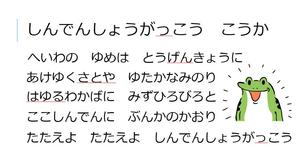 しんでんしょうがっこう　こうか
へいわの　ゆめは　とうげんきょうに
あけゆくさとや　ゆたかなみのり
はゆるわかばに　みずひろびろと
ここしんでんに　ぶんかのかおり
たたえよ　たたえよ　しんでんしょうがっこう